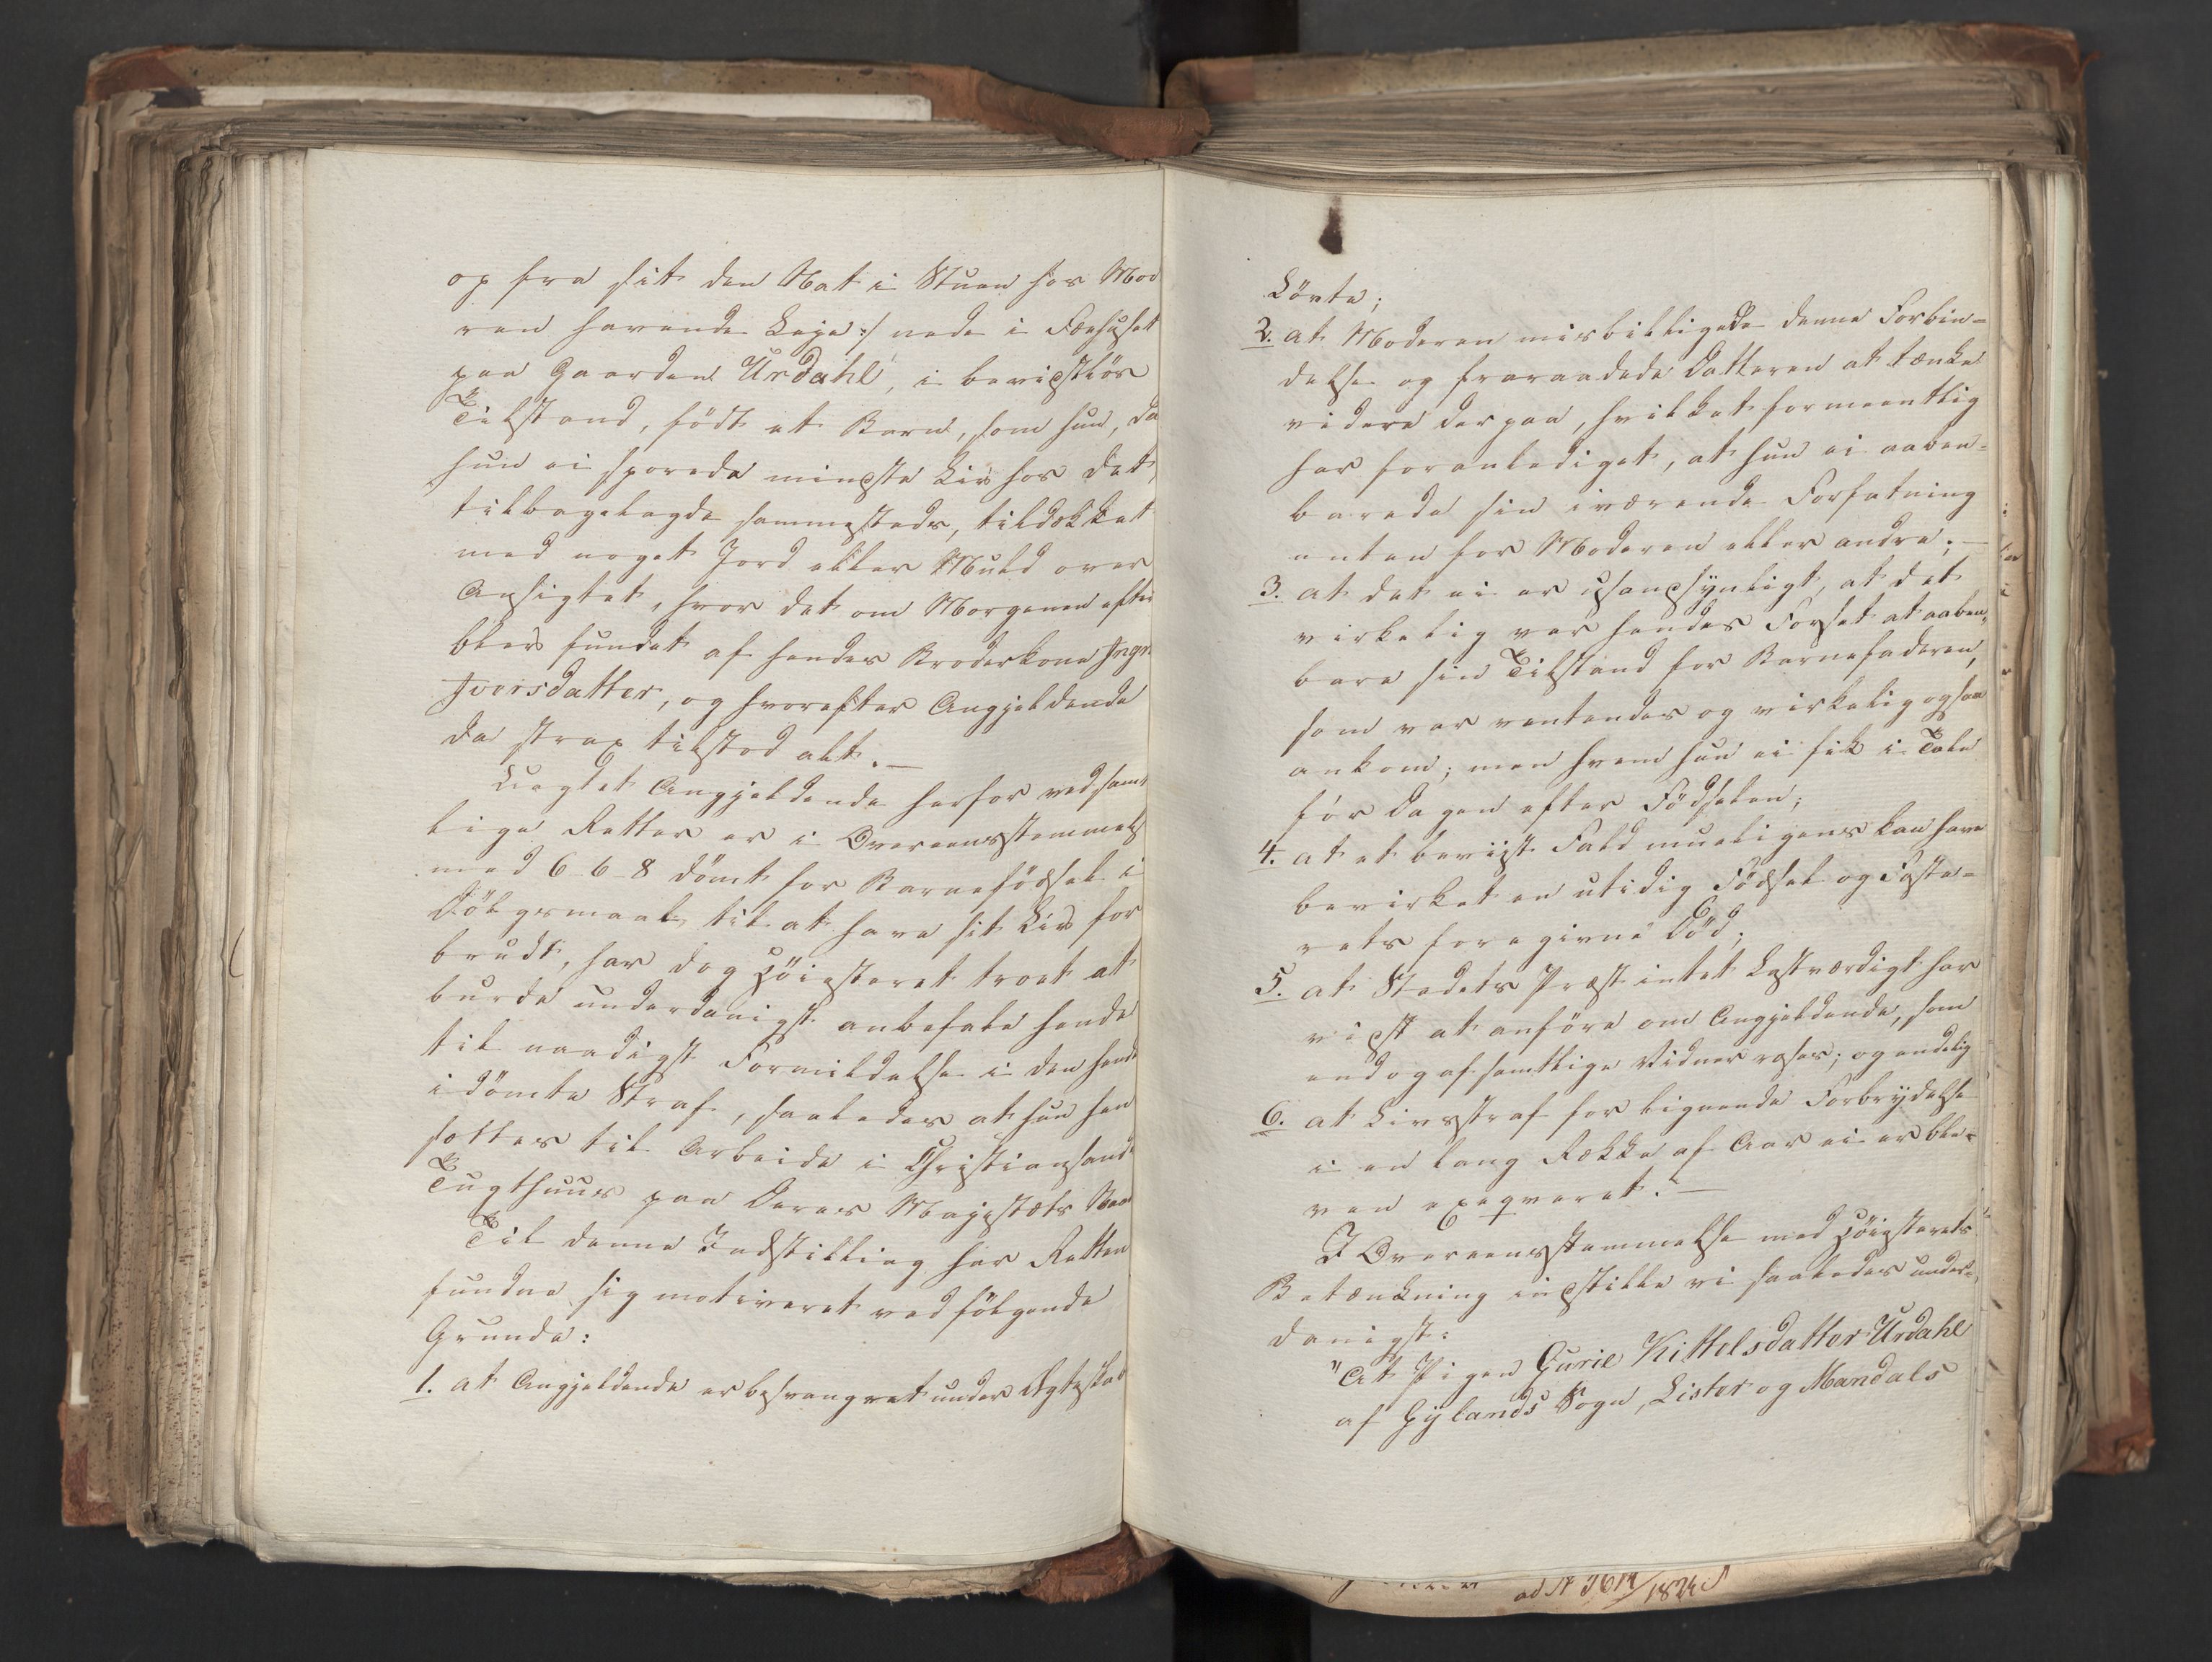 op fra sit den Nat i Stuen hos Mod
ren havende Leje :/ nede i Fæhuset
paa Gaarden Urdahl, i bevidstløs
Tilstand, födt et Barn, som hun, da
hun ei sporede mindste Liv hos det,
tilbagelagde sammesteds, tildækket
med noget Jord eller Muld over
Ansigtet, hvor det om Morgenen efter
blev fundet af hendes Broderkone Ingr
Iversdatter, og hvorefter Angjeldende
da strax tilstod alt. —
Uagtet Angjeldende herfor ved samt
lige Retter er i Overeensstemmelse
med 6-6-8 dömt for Barnefödsel i
Dölgsmaal, til at have sit Liv for
brudt, har dog Höiesteret troet at
burde underdanigst anbefale hende
til naadigst Formildelse i den hende
idömte Straf, saaledes at hun hen
sættes til Arbeide i Christiansands
Tugthuus paa Deres Majestæts Naade
Til denne Indstilling har Retten
fundne sig motiveret ved fölgende
Grunde:
1. at Angjeldende er besvangret under Ægteskab
Lövte;
2. at Moderen misbilligede denne Forbin-
delse og fraraadede Datteren at tænke
videre derpaa, hvilket formeentlig
har foranlediget, at hun ei aaben-
barede sin iværende Forfatning
enten for Moderen eller andre; —
3. at det ei er usandsynligt, at det
virkelig var hendes Forsæt at aaben-
bare sin Tilstand for Barnefaderen,
som var ventendes og virkelig ogsaa
ankom; men hvem hun ei fik i Tale
för Dagen efter Födselen;
4. at et beviist Fald mueligens kan have
bevirket en utidig Födsel og Foste-
rets foregivne Död;
5. at Stedets Præst intet Lastværdigt har
vidst at anföre om Angjeldende, som
endog af samtlige Vidner roses; og endelig
6. at Livsstraf for lignende Forbrydelse
i en lang Række af Aar ei er ble-
ven exeqveret. —
I Overeensstemmelse med Höiesterets
Betænkning indstille vi saaledes under-
danigst:
"At Pigen Gurie Kittelsdatter Urdahl
af Gylands Sogn, Lister og Mandals